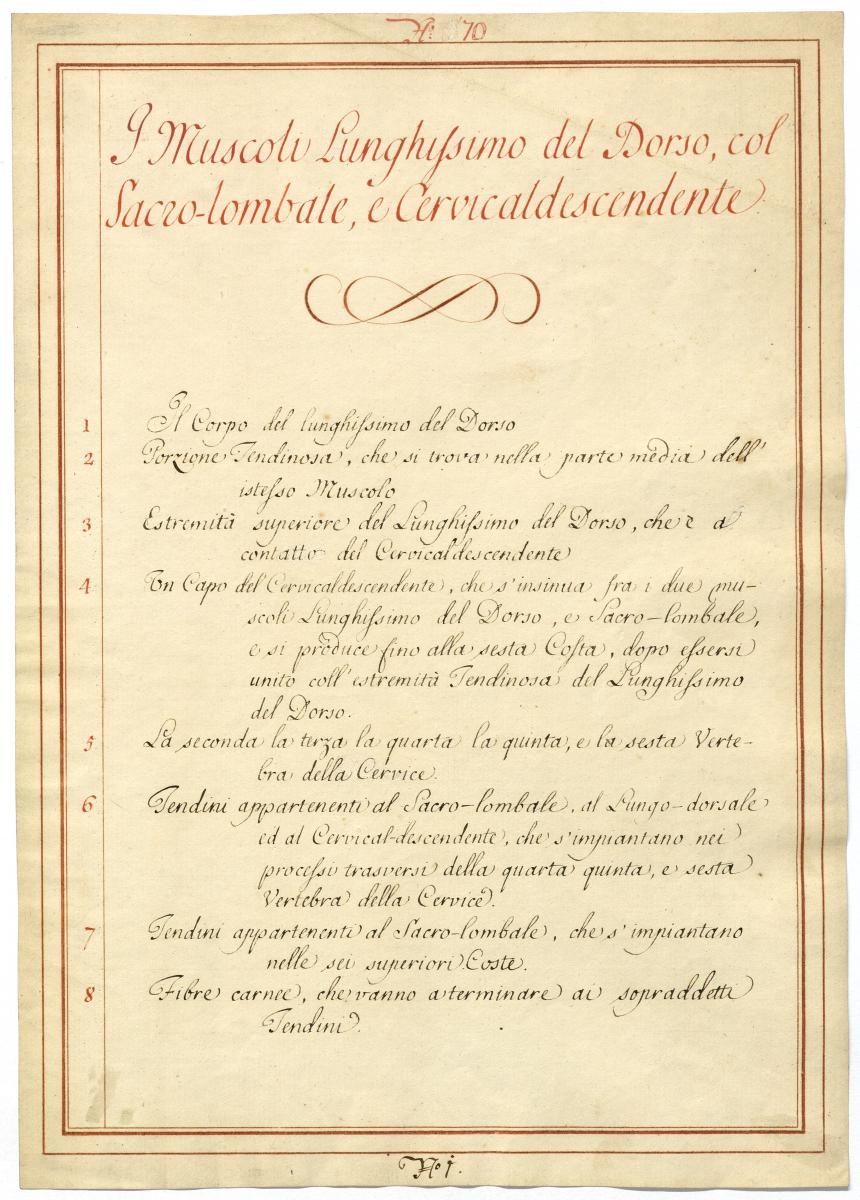 N: 70
I Muscoli Lunghiſsimo del Dorso, col
Sacro-lombale, e Cervicaldescendente.
1 Il Corpo del lunghiſsimo del Dorso
2 Porzione Tendinosa, che si trova nella parte media dell'
isteſso Muscolo
3 Estremità superiore del Lunghiſsimo del Dorso, che è a
contatto del Cervicaldescendente
4 Un Capo del Cervicaldescendente, che s'insinua fra i due mu-
scoli Lunghiſsimo del Dorso, e Sacro-lombale,
e si produce fino alla sesta Coſta, dopo eſsersi
unito coll'estremità Tendinosa del Lunghiſsimo
del Dorso.
5 La seconda la terza la quarta la quinta, e la sesta Verte-
bra della Cervice.
6 Tendini appartenenti al Sacro-lombale, al Lungo-dorsale
ed al Cervical-descendente, che s'impiantano nei
proceſsi trasversi della quarta quinta, e sesta
Vertebra della Cervice.
7 Tendini appartenenti al Sacro-lombale, che s'impiantano
nelle sei superiori Coste.
8 Fibre carnee, che vanno a terminare ai sopraddetti
Tendini.
No 1.